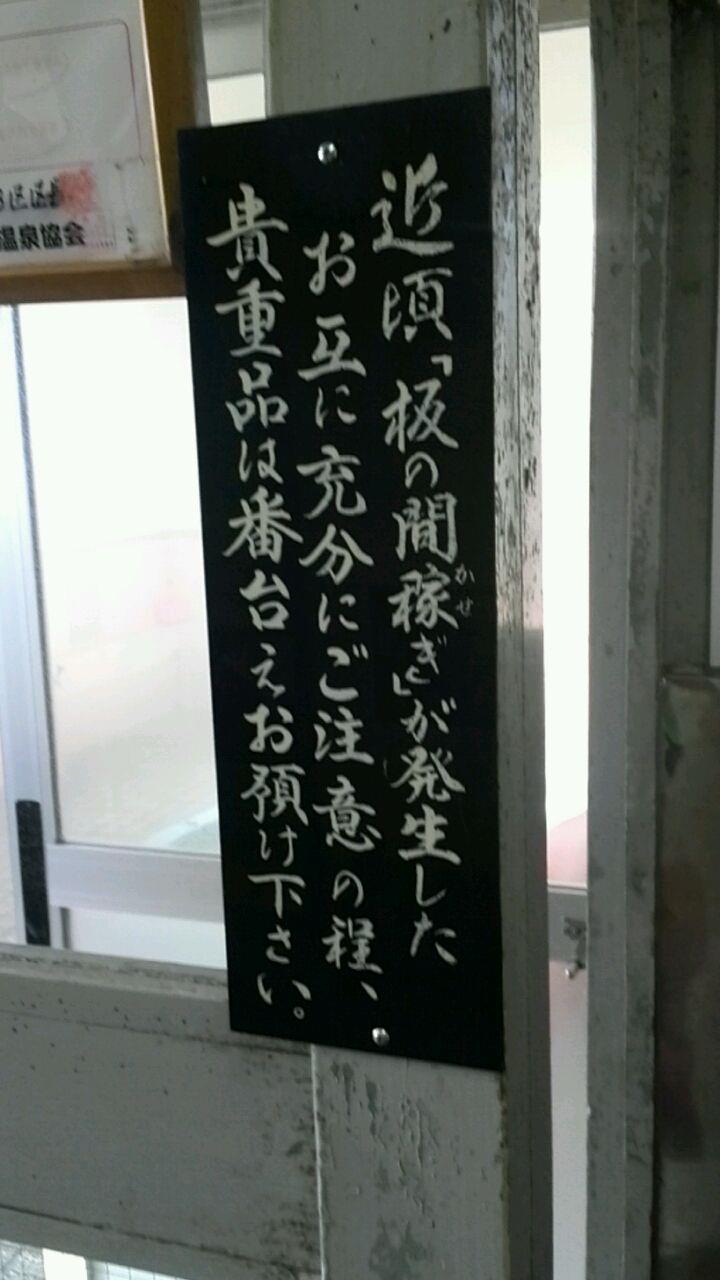 近頃「板の間稼ぎ」が発生した
かせ
お互に充分にご注意の程、
貴重品は番台えお預け下さい。
温泉協会